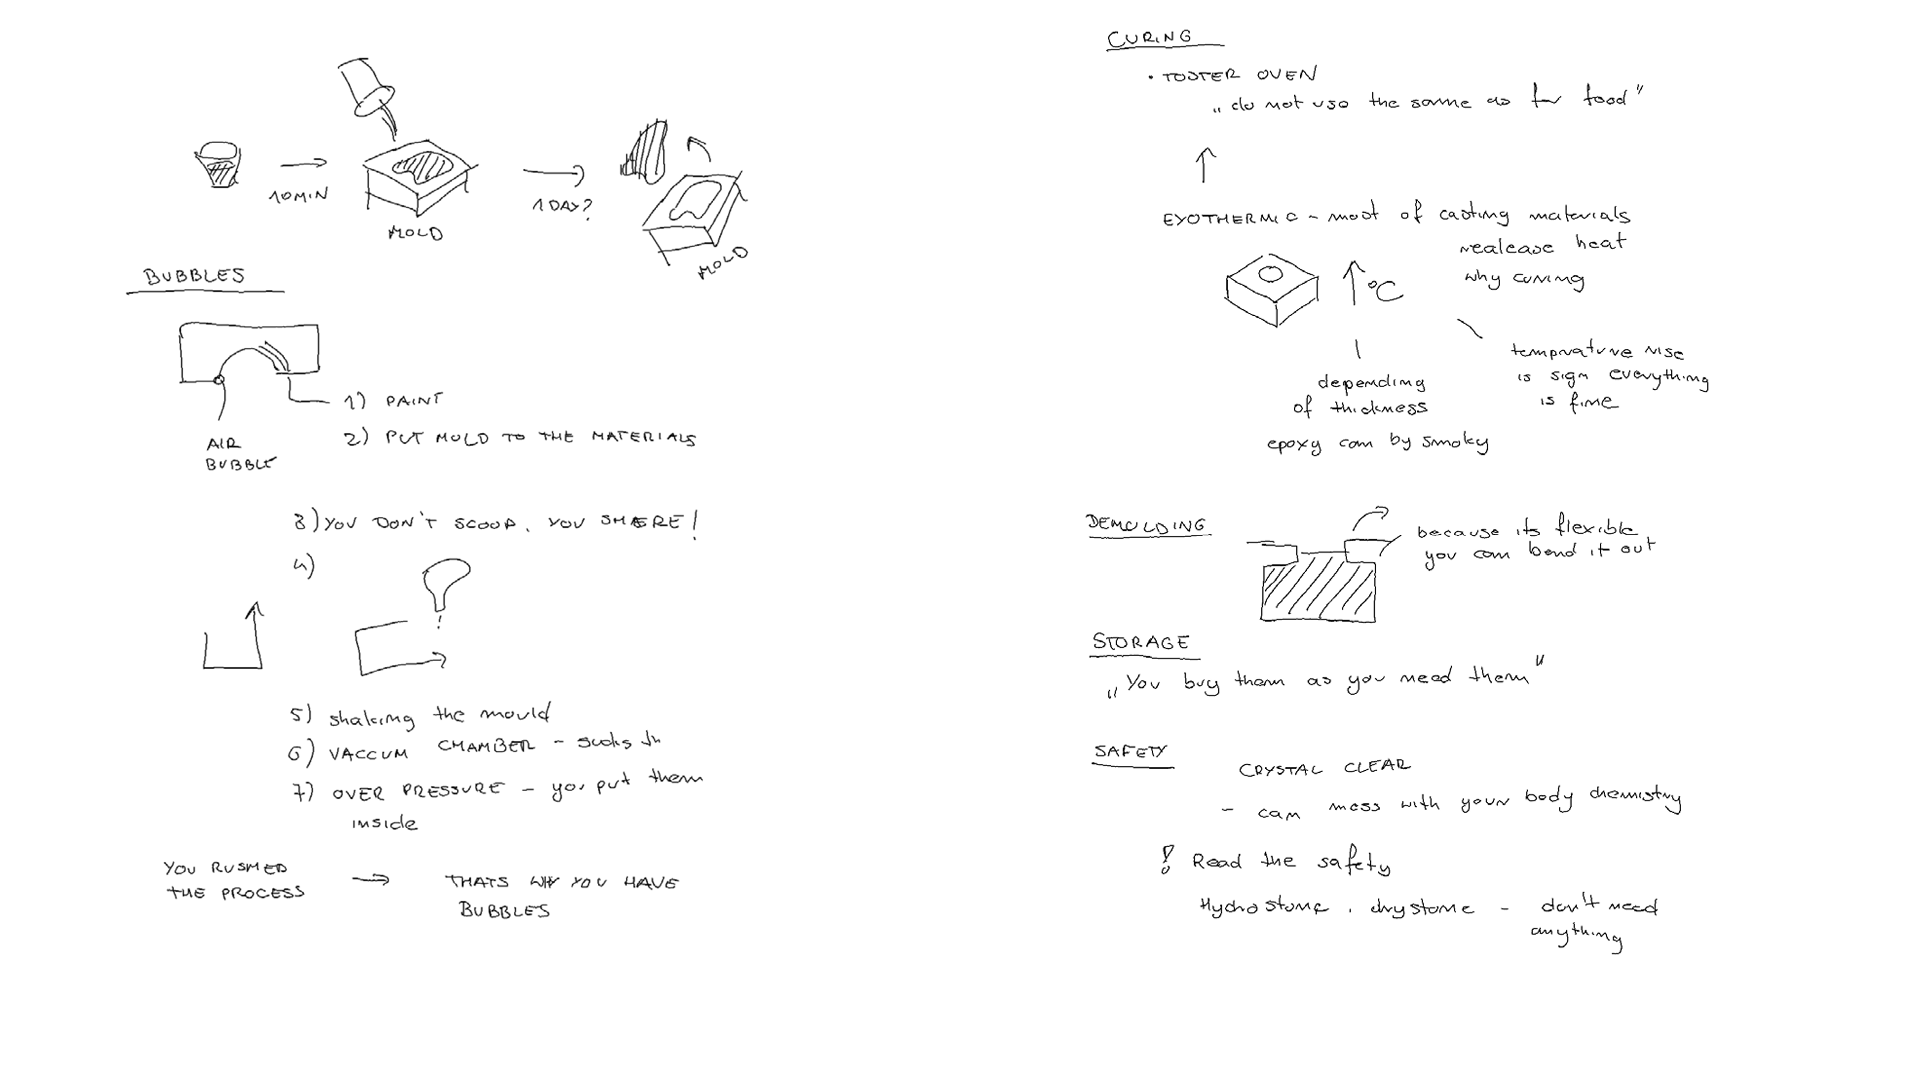 10MIN
MOLD
1 DAY?
MOLD
BUBBLES
AIR
BUBBLE
1) PAINT
2) PUT MOLD TO THE MATERIALS
3) YOU DON'T SCOOP, YOU SHERE!
4)
5) shaking the mould
6) VACCUM CHAMBER - sucks
7) OVER PRESSURE - you put them
inside
YOU RUSHED
THE PROCESS
THATS WHY YOU HAVE
BUBBLES
CURING
• TOSTER OVEN
„do not use the same as for food"
EXOTHERMIC - most of casting materials
realease heat
why curing
°C
temprature rise
is sign everything
is fine
depending
of thickness
epoxy can by smoky
DEMOLDING
because its flexible
you can bend it out
STORAGE
„You buy them as you need them"
SAFETY
CRYSTAL CLEAR
- can mess with your body chemistry
! Read the safety
Hydrostone, drystone - don't need
anything